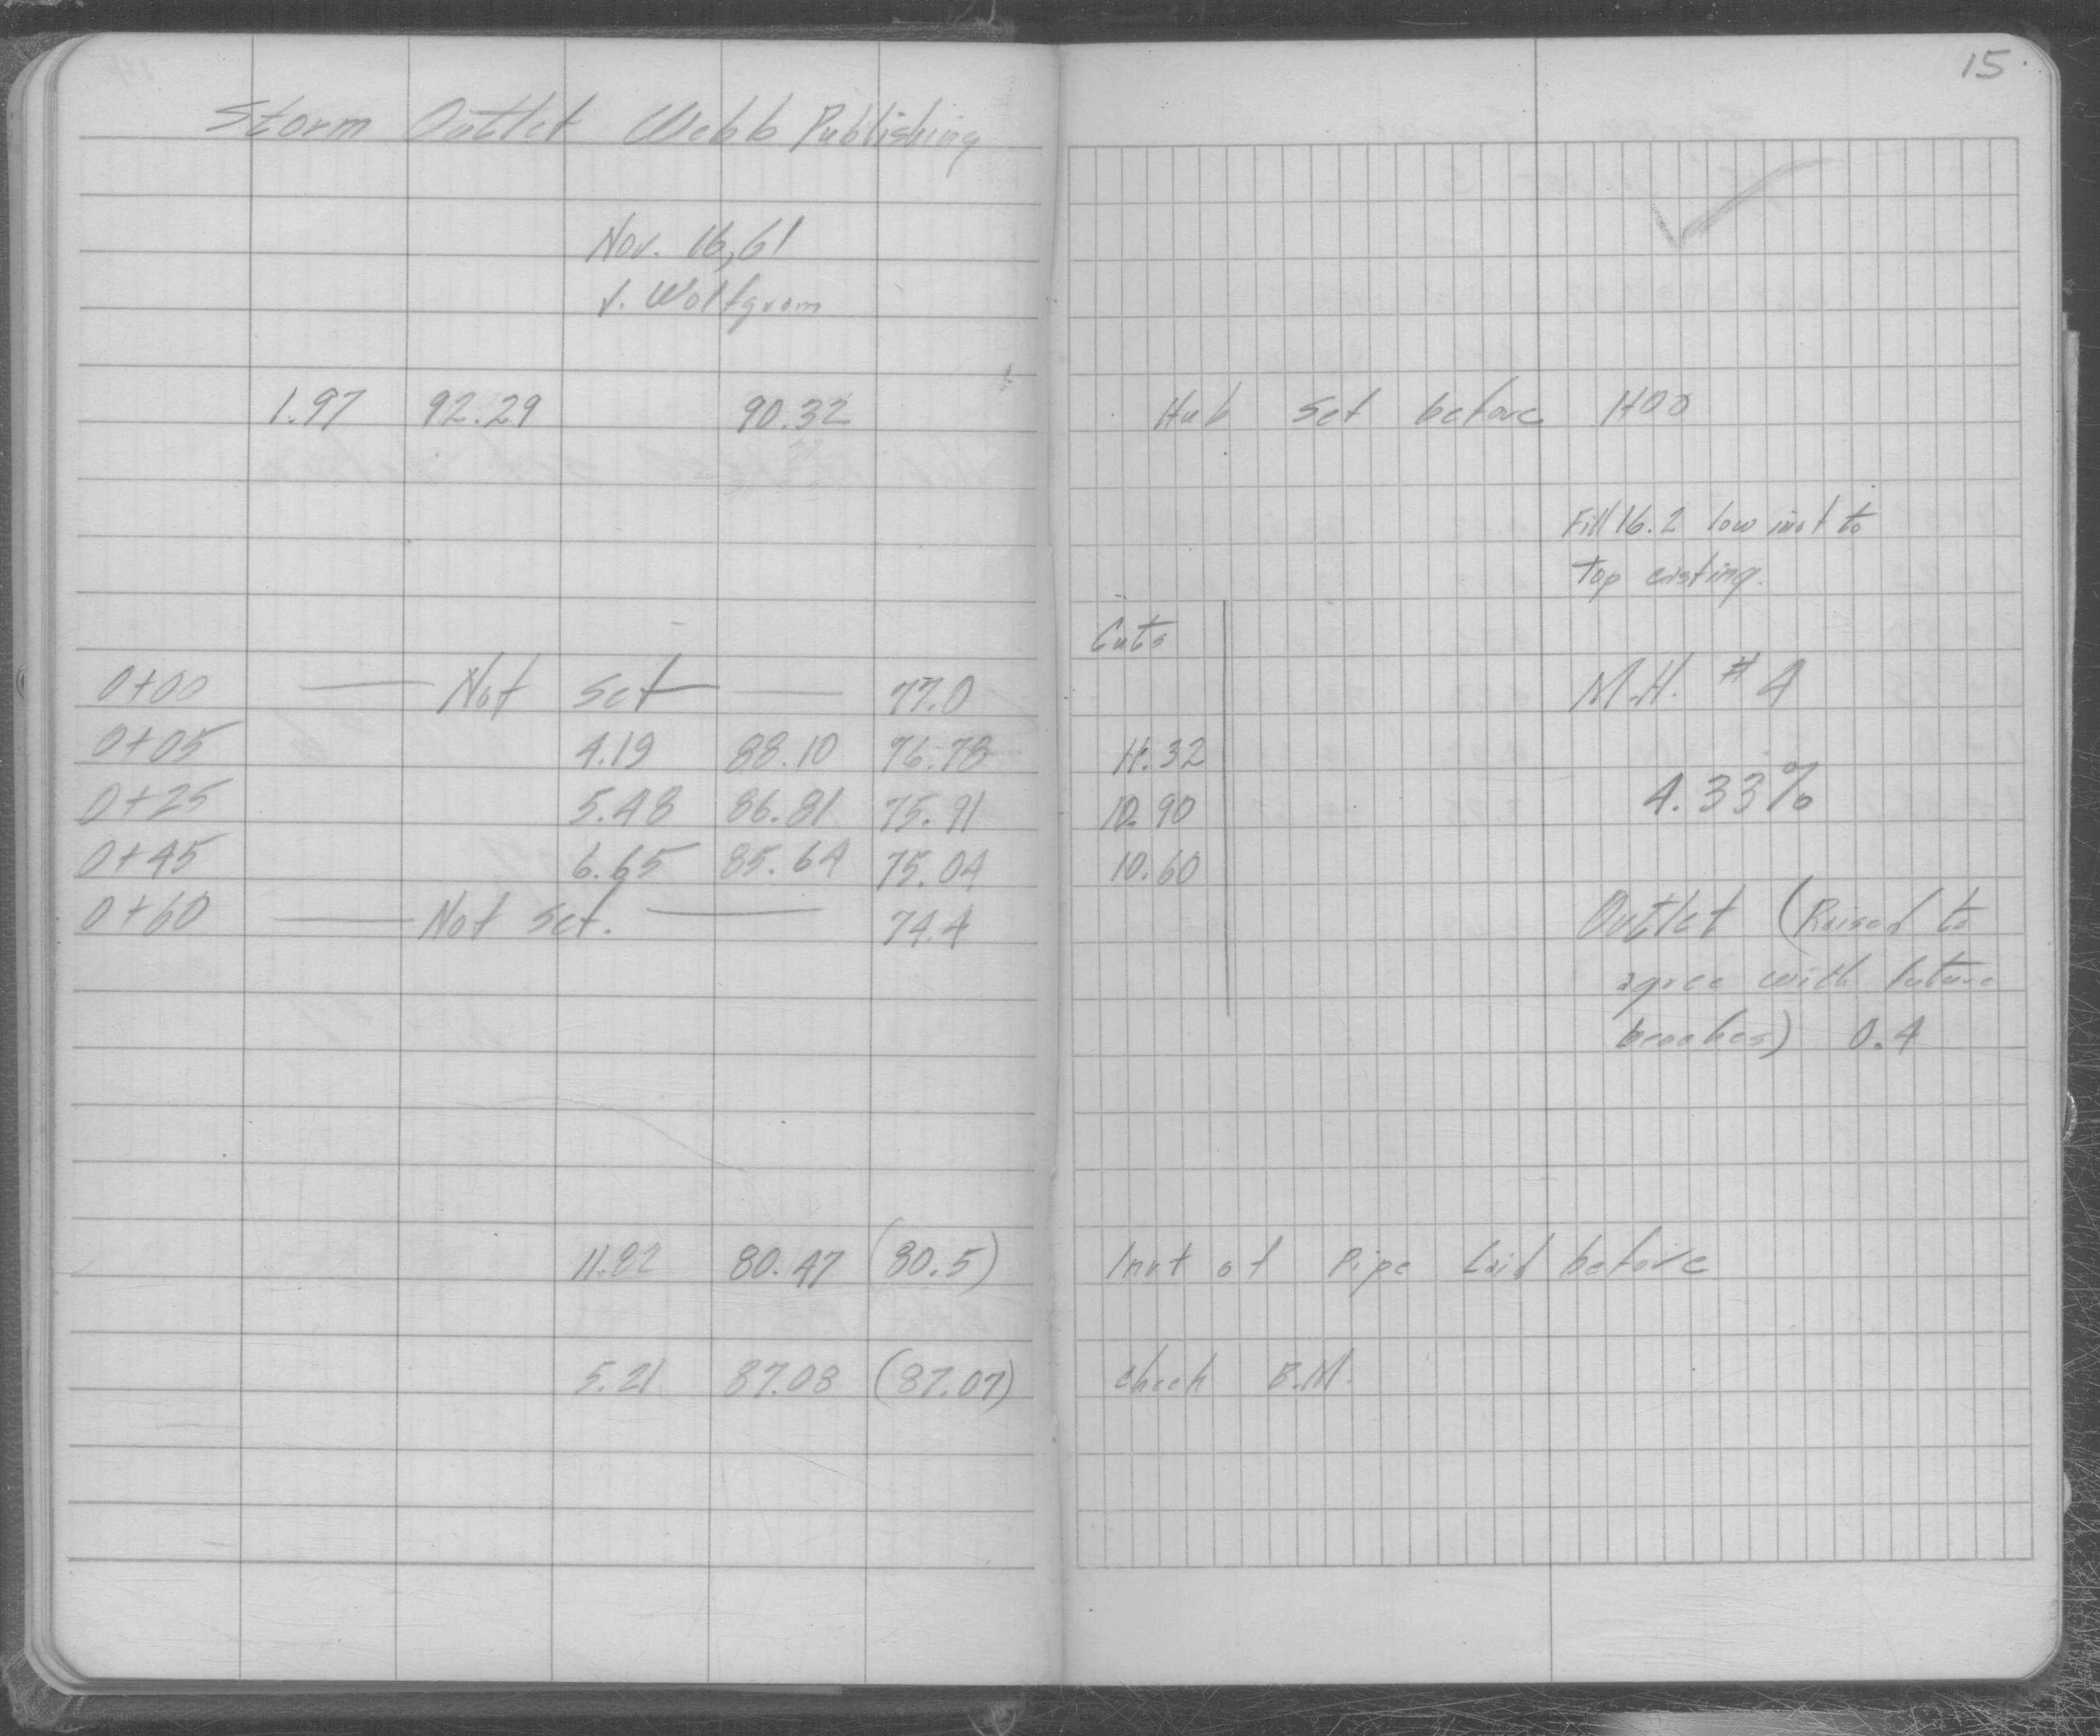 15.
Storm Outlet Webb Publishing
Nov. 16, 61
J. Wolfgram
1.97 92.29 90.32 Hub set before 1+00
Fill 16.2 low invt to
top casting.
Cuts
0+00 Not Set 77.0 M.H. #4
0+05 4.19 88.10 76.78 11.32
0+25 5.48 86.81 75.91 10.90 4.33%
0+45 6.65 85.64 75.04 10.60
0+60 Not Set. 74.4 Outlet (Raised to
agree with future
benches) 0.4
11.82 80.47 (80.5) Invt of Pipe Laid before
5.21 87.08 (87.07) check B.M.